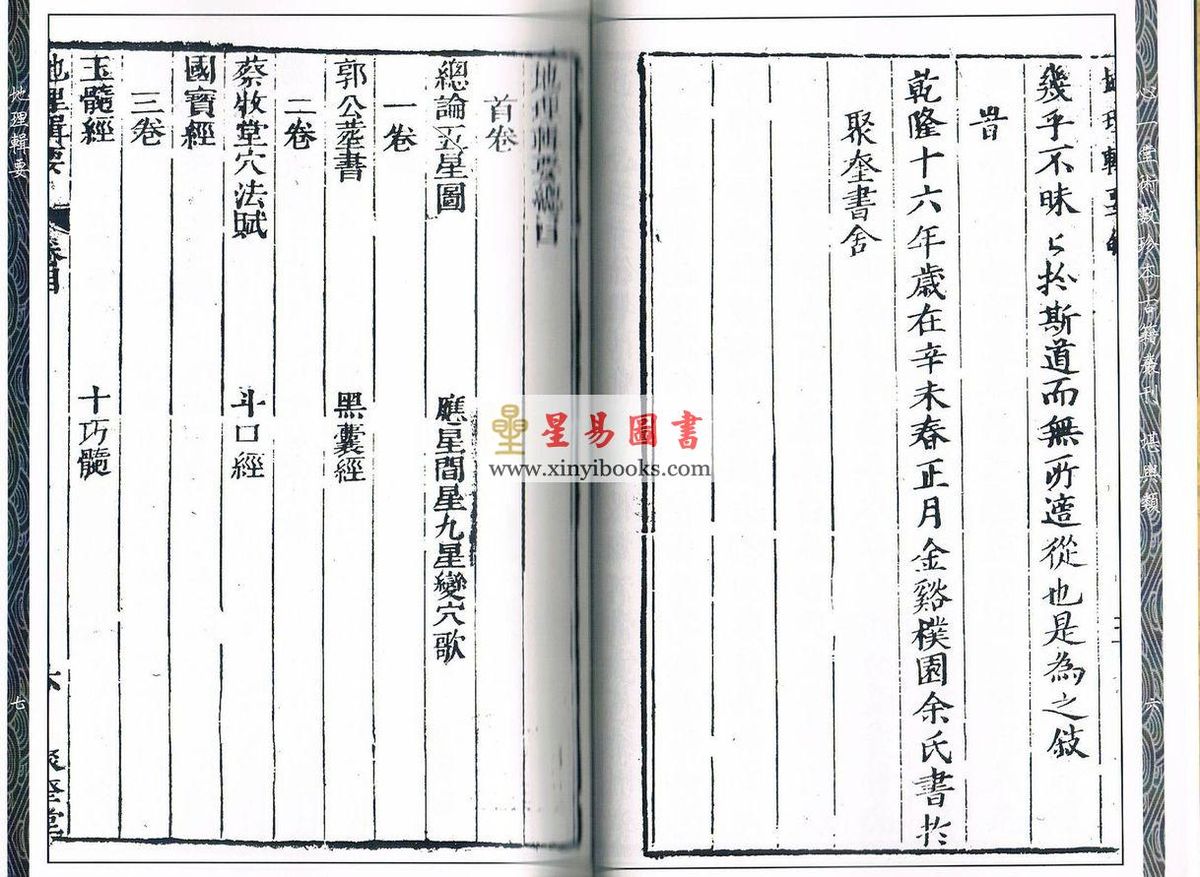 心一堂術數珍本古籍叢刊 堪輿類
六
幾乎不昧〻於斯道而無所適從也是為之敍
旹
乾隆十六年歲在辛未春正月金谿樸園余氏書於
聚奎書舍
地理輯要總目
首卷
總論五星圖 應星間星九星變穴歌
一卷
郭公葬書 黑囊經
二卷
蔡牧堂穴法賦 斗口經
國寶經
三卷
玉髓經 十巧髓
地理輯要
地理輯要
七
星易圖書
www.xinyibooks.com